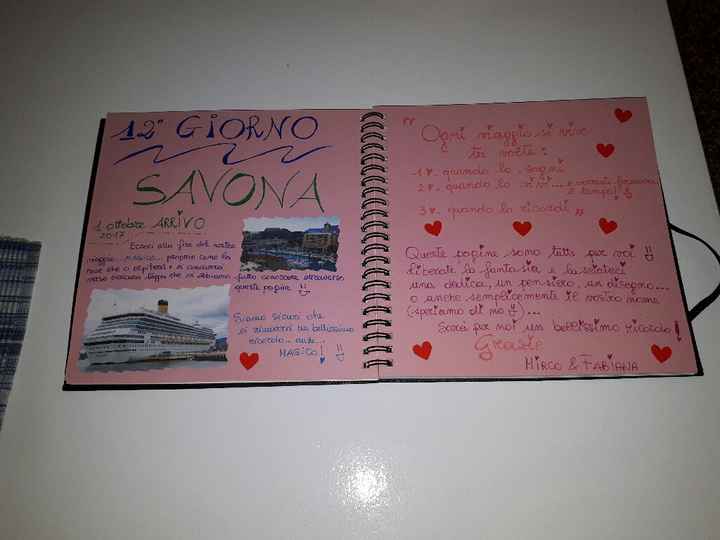 12° GIORNO
SAVONA
1 ottobre ARRIVO
2017
Eccoci alla fine del nostro
viaggio... MAGICO... proprio come la
nave che ci ospiterà e ci condurrà
verso ciascuna tappa che vi abbiamo fatto conoscere attraverso
queste pagine
Siamo sicuri che
vi rimarrà un bellissimo
ricordo... anzi...
MAGICO!
"Ogni viaggio si vive
tre volte:
1 v. quando lo sogni
2 v. quando lo vivi...
il tempo!
3 v. quando lo ricordi"
Queste pagine sono tutte per voi
liberate la fantasia e lasciateci
una dedica, un pensiero, un disegno...
o anche semplicemente il vostro nome
(speriamo di no)...
Sarà per noi un bellissimo ricordo!
Grazie
MIRCO & FABIANA